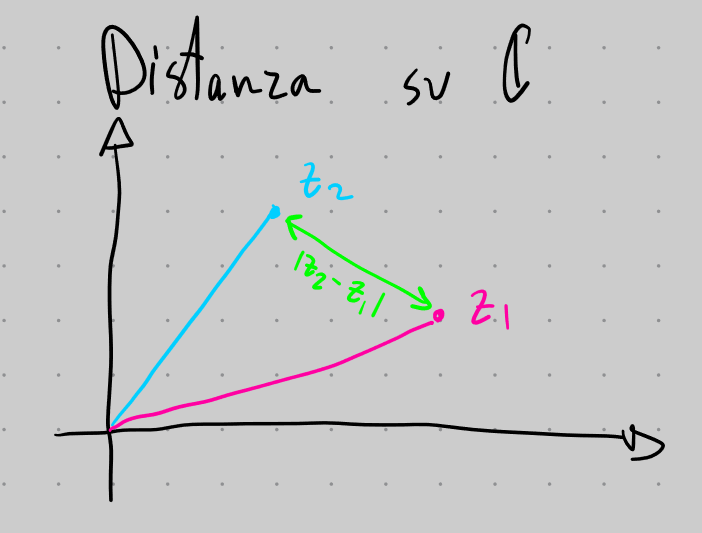 Distanza su ℂ
z₂
|z₂-z₁|
z₁